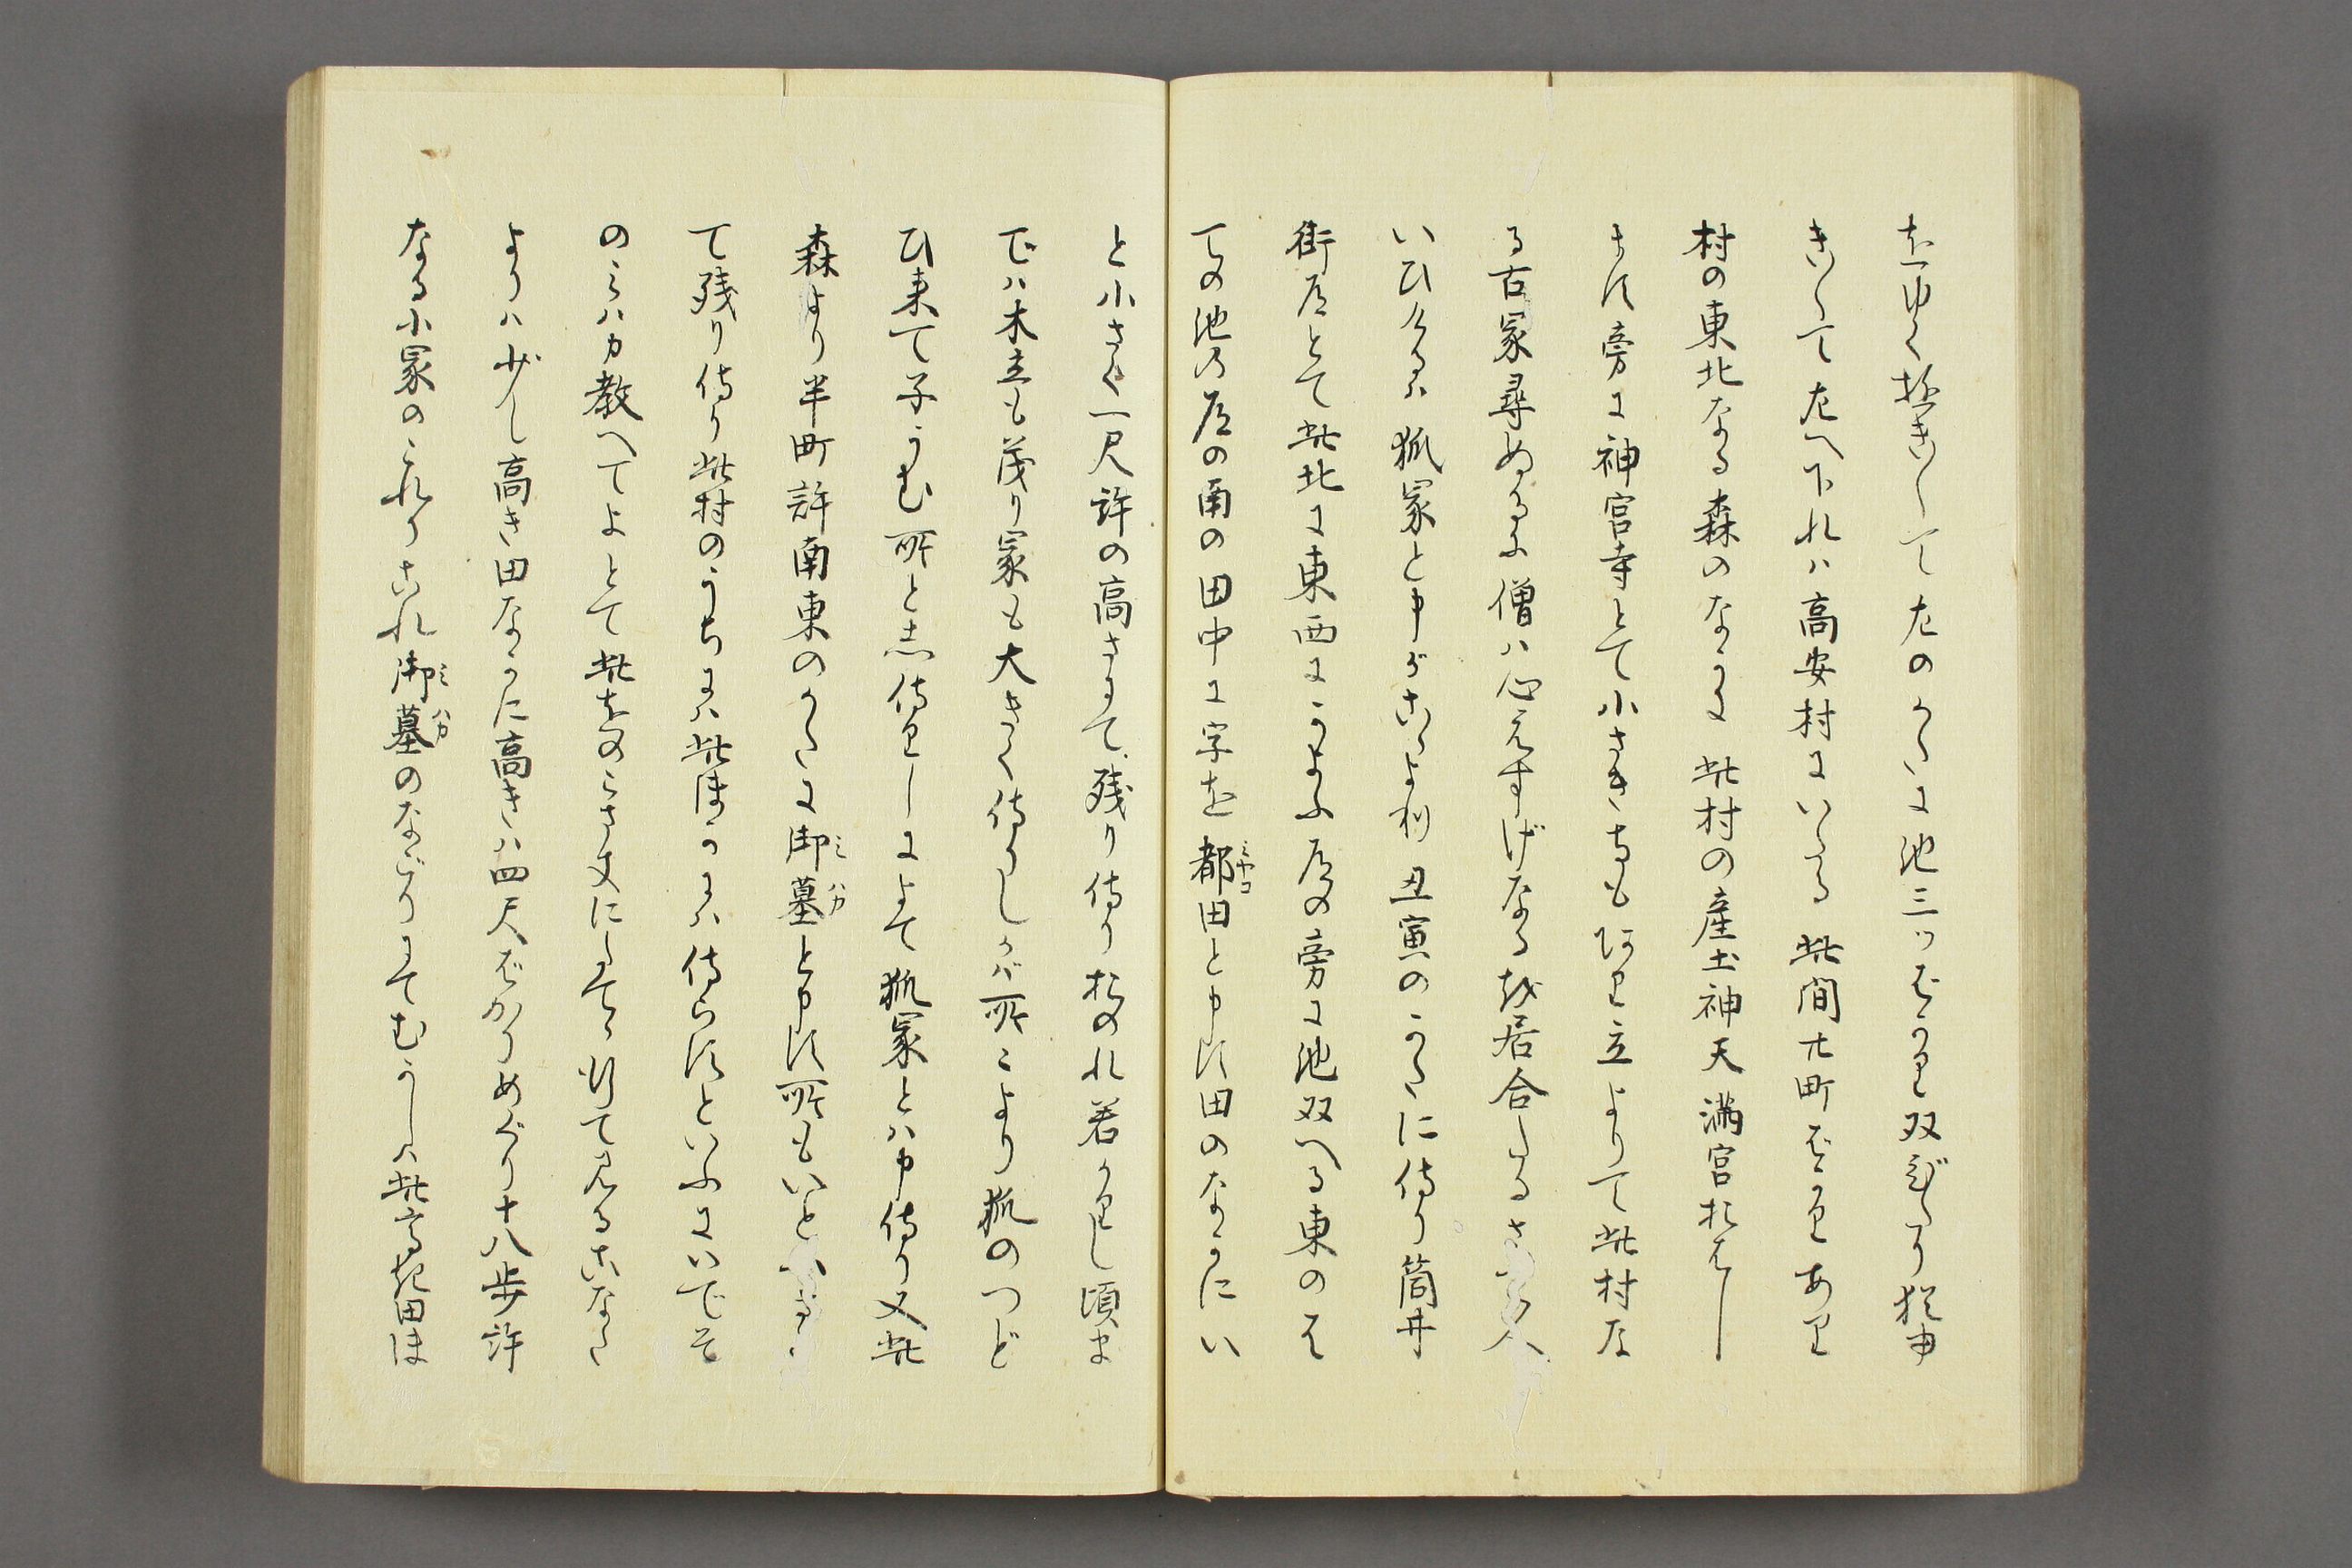 をゆく極きはして左のかたに池三ツばかり双びたり猶由
きゝて左へ下れハ高安村にいたる此間七町ばかりあり
村の東北なる森のなかに此村の産土神天満宮おはし
ます旁に神宮寺とて小さき寺もあり立よりて此村な
る古冢尋ぬるに僧ハ心えすげなる故居合たるさと人
いひけるハ狐冢と申がこゝより丑寅のかたに侍り筒井
街道とて此北に東西にかよふ道の旁に池双へる東のは
ての池の道の南の田中に字を都田と申す田のなかにい
と小さく一尺許の高さにて残り侍りおのれ若かりし頃ま
でハ木立も茂り冢も大きく侍りしかば所〻より狐のつど
ひ来て子うむ所と志侍りしによて狐冢とハ申侍り又此
森より半町許南東のかたに御墓と申す所もいと小さく
て残り侍り此村のうちにハ此ほかにハ侍らすといふにいでそ
のミハカ教へてよとて此をのこさ丈にたてゝ行て見るにあなた
よりハ少し高き田なかに高きハ四尺ばかりめぐり十八歩許
なる小冢のこれりこれ御墓のなごりにてむかしハ此高き田ほ
ミヤコ
ミハカ
ミハカ